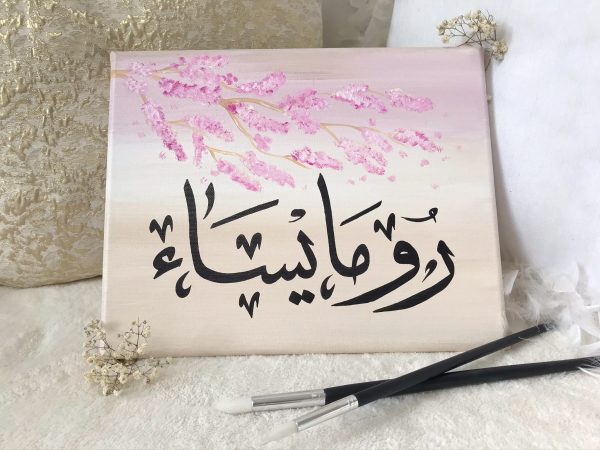 رُومَايسَاء